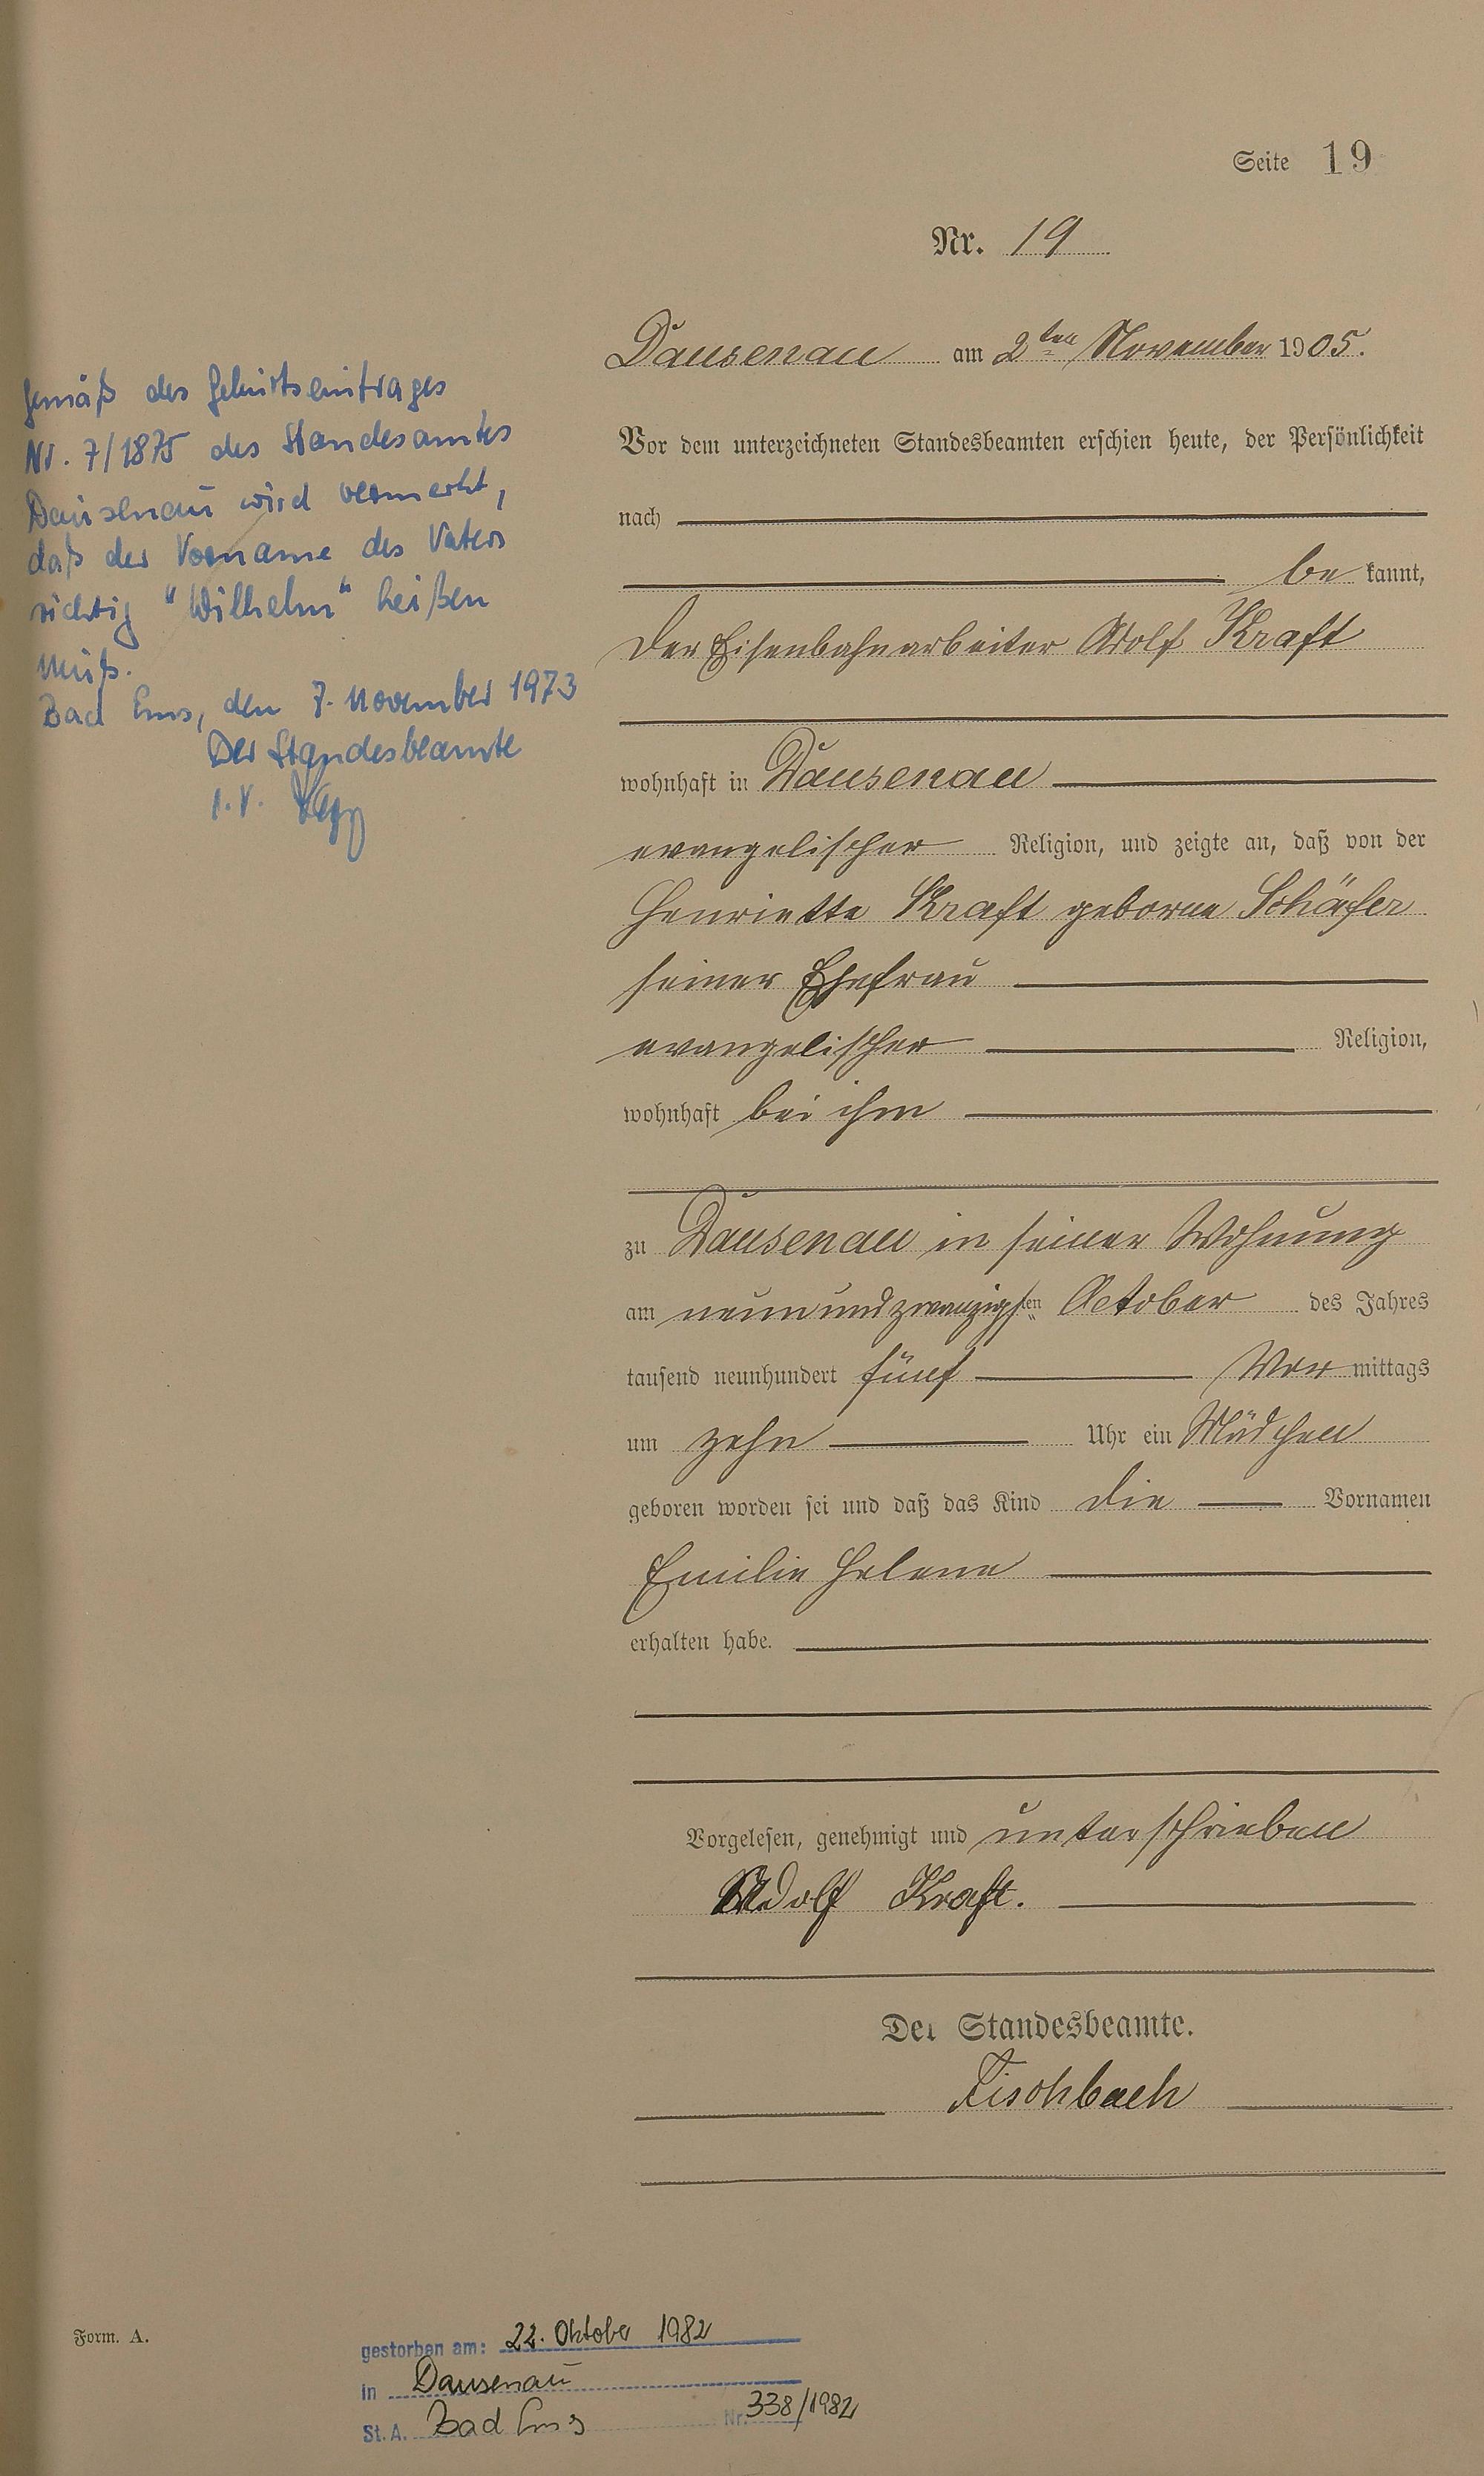 Seite 19
Nr. 19
Dausenau am 2ten November 1905.
Vor dem unterzeichneten Standesbeamten erschien heute, der Persönlichkeit
nach
be kannt,
der Eisenbahnarbeiter Adolf Kraft
wohnhaft in Dausenau
evangelischer Religion, und zeigte an, daß von der
Henriette Kraft geborne Schäfer
seiner Ehefrau
evangelischer Religion,
wohnhaft bei ihm
zu Dausenau in seiner Wohnung
am neunundzwanzigsten October des Jahres
tausend neunhundert fünf Vor mittags
um zehn Uhr ein Mädchen
geboren worden sei und daß das Kind die Vornamen
Emilie Helene
erhalten habe.
Vorgelesen, genehmigt und unterschrieben
Adolf Kraft.
Der Standesbeamte.
Fischbach
gemäß des Geburtseintrages
Nr. 7/1875 des Standesamtes
Dausenau wird vermerkt,
daß der Vorname des Vaters
richtig "Wilhelm" heißen
muß.
Bad Ems, den 7. November 1973
Der Standesbeamte
I.V.
Form. A.
gestorben am: 22. Oktober 1982
in Dausenau
St. A. Bad Ems Nr. 338/1982